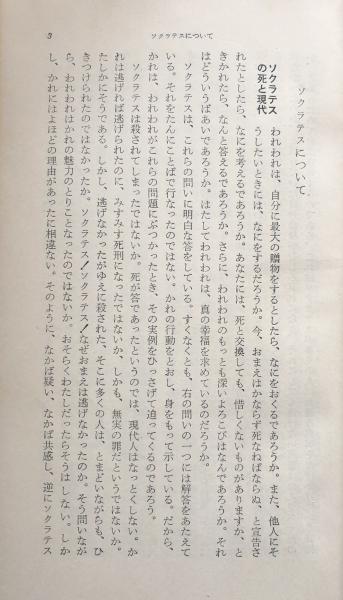 ソクラテスについて
3
ソクラテスについて
ソクラテス
の死と現代
われわれは、自分に最大の贈物をするとしたら、なにをおくるであろうか。また、他人にそ
うしたいときには、なにをするだろうか。今、おまえはかならず死なねばならぬ、と宣告さ
れたとしたら、なにを考えるであろうか。あなたには、死と交換しても、惜しくないものがありますか、と
きかれたら、なんと答えるであろうか。さらに、われわれのもっとも深いよろこびはなんであろうか。それ
はどういうばあいであろうか。はたしてわれわれは、真の幸福を求めているのだろうか。
ソクラテスは、これらの問いに明白な答をしている。すくなくとも、右の問いの一つには解答をあたえて
いる。それをたんにことばで行なったのではない。かれの行動をとおし、身をもって示している。だから、
かれは、われわれがこれらの問題にぶつかったとき、その実例をひっさげて迫ってくるのであろう。
ソクラテスは殺されてしまったではないか。死が答であったというのでは、現代人はなっとくしない。か
れは逃げれば逃げられたのに、みすみす死刑になったではないか、しかも、無実の罪だというではないか。
たしかにそうである。しかし、逃げなかったがゆえに殺された、そこに多くの人は、とまどいながらも、ひ
きつけられたのではなかったか。ソクラテス！ソクラテス！なぜおまえは逃げなかったのか。そう問いなが
ら、われわれはかれの魅力のとりことなったのではないか。おそらくわたしだったらそうはしない。しか
し、かれにはよほどの理由があったに相違ない。そのように、なかば疑い、なかば共感し、逆にソクラテス